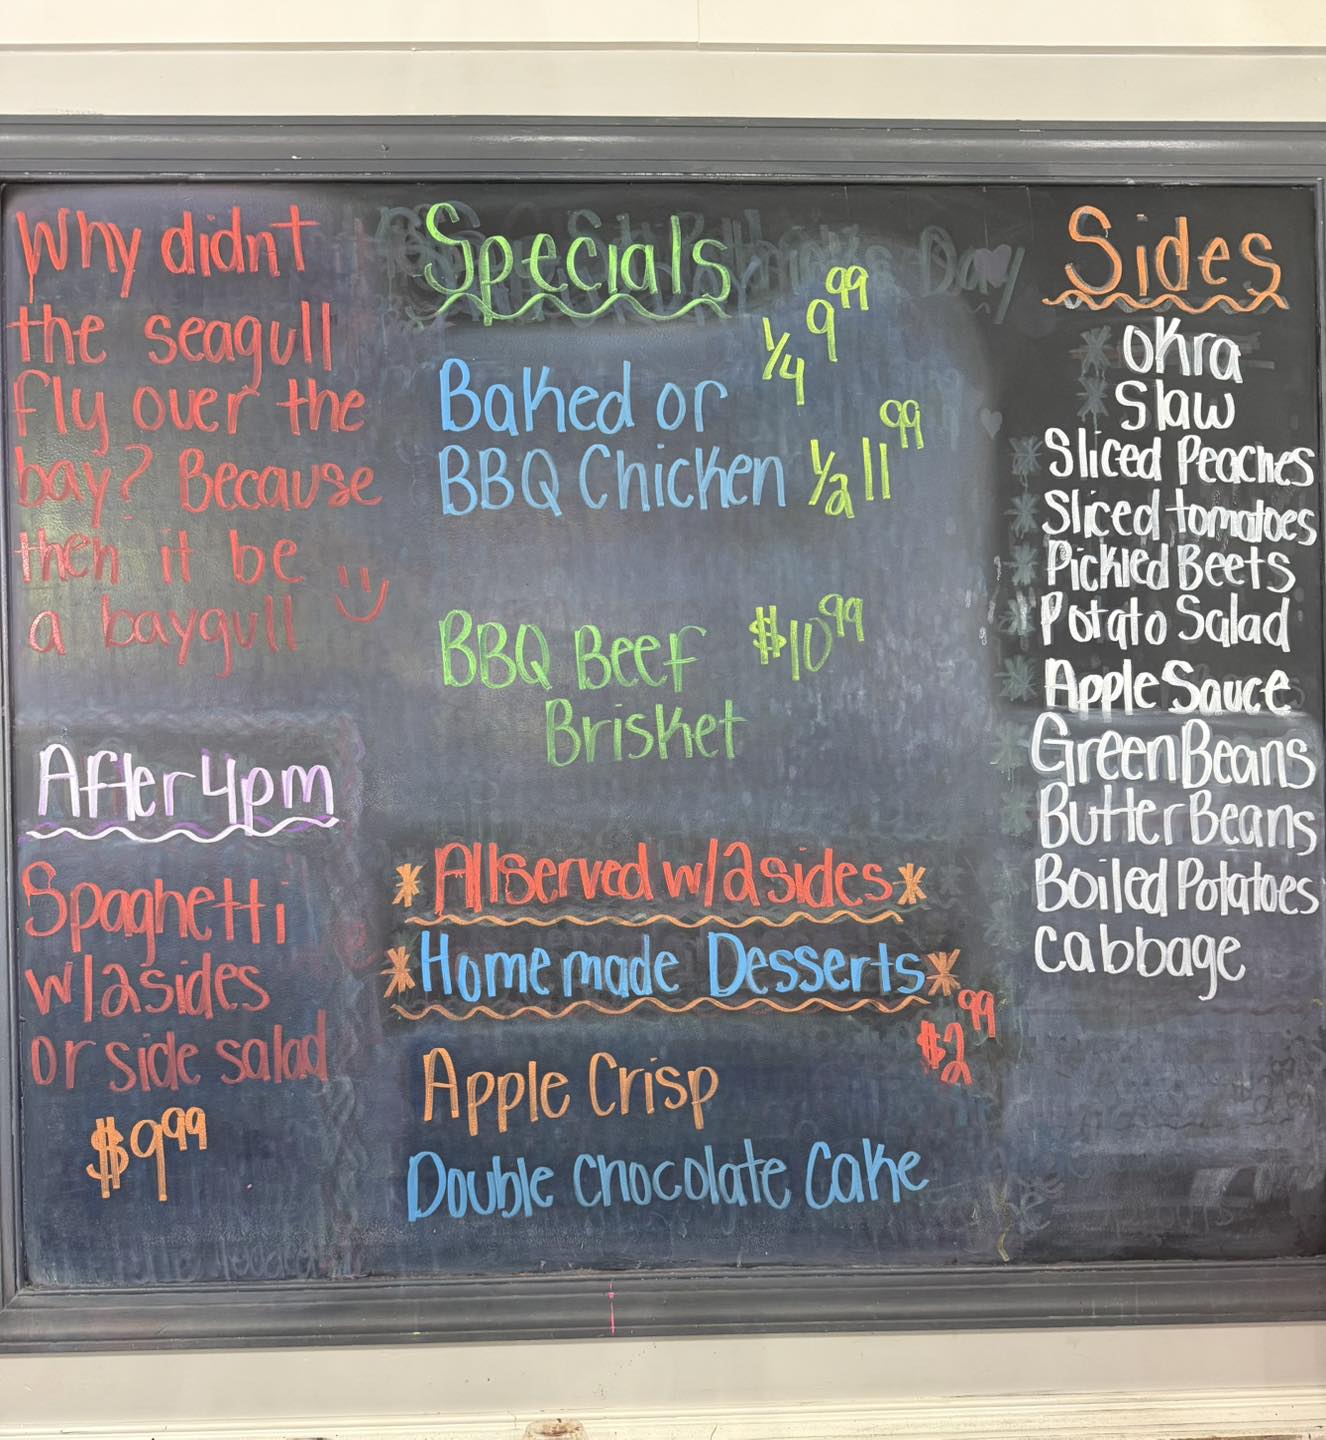 Why didnt
the seagull
fly over the
bay? Because
then it be
a baygull
After 4pm
Spaghetti
w/2sides
or side salad
$9.99
Specials
Baked or 1/4 9.99
BBQ Chicken 1/2 11.99
BBQ Beef $10.99
Brisket
* All served w/2 sides *
* Homemade Desserts *
$2.99
Apple Crisp
Double Chocolate Cake
Sides
Okra
Slaw
Sliced Peaches
Sliced tomatoes
Pickled Beets
Potato Salad
Apple Sauce
Green Beans
Butter Beans
Boiled Potatoes
Cabbage